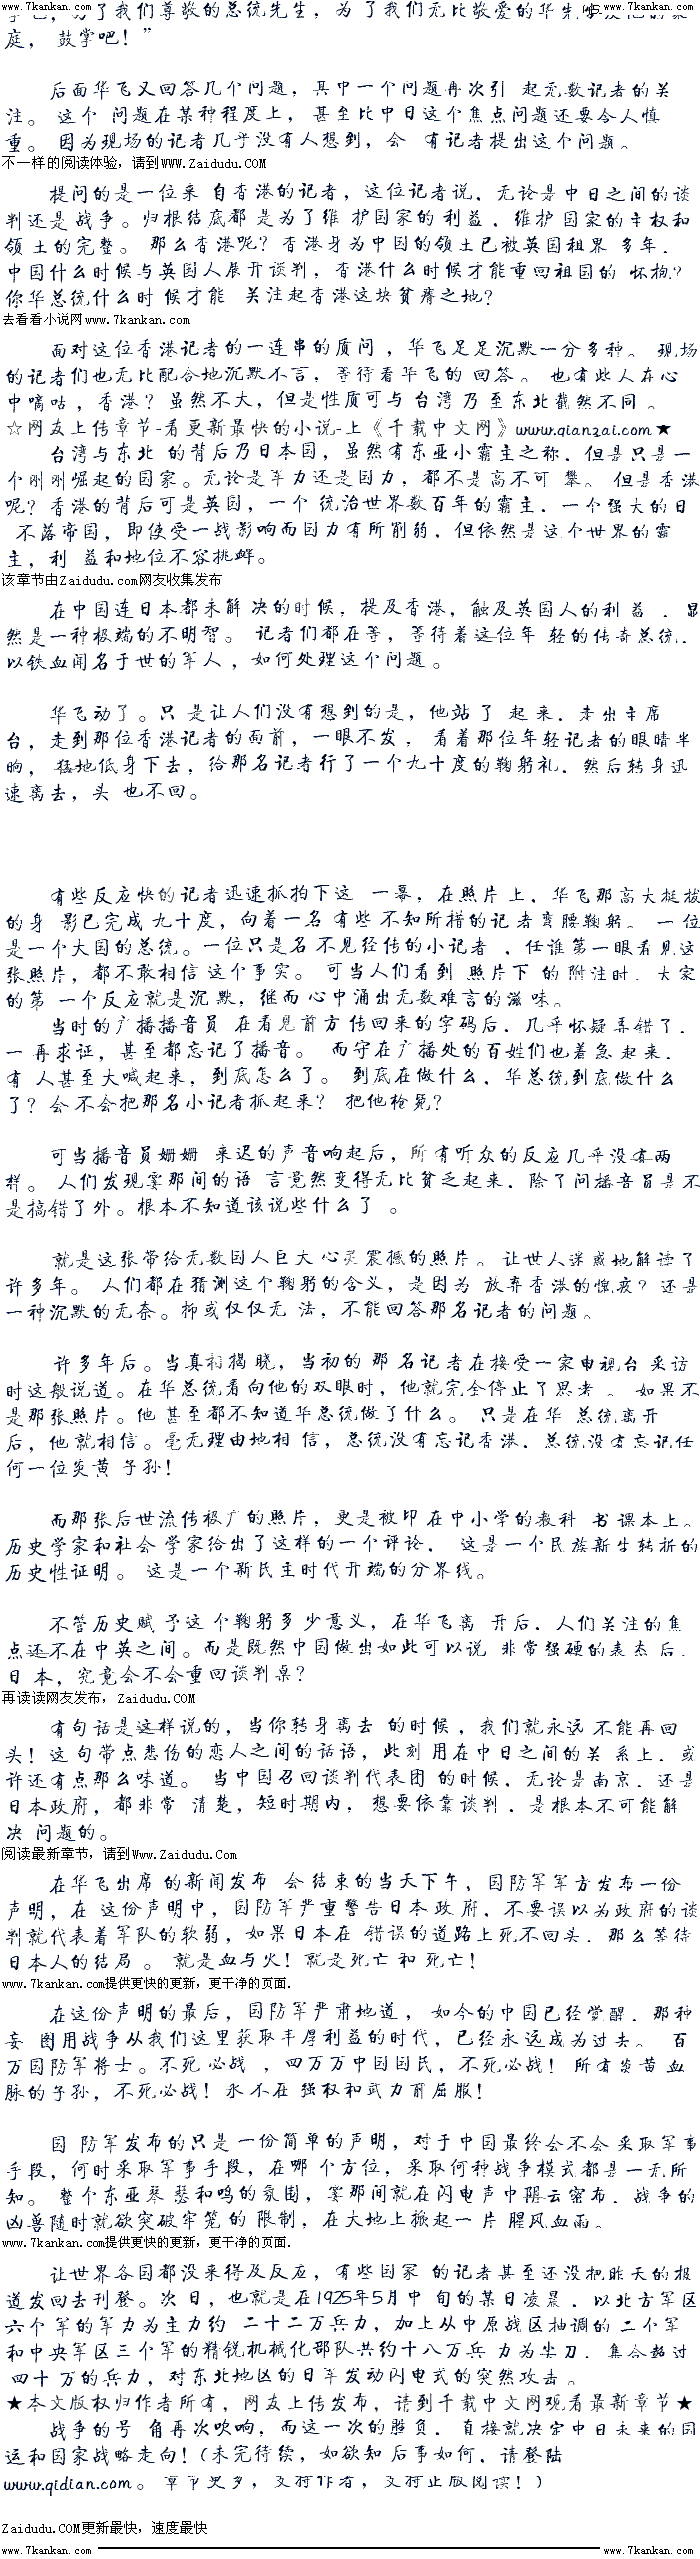 www.7kankan.com
www.7kankan.com
庭，鼓掌吧！”
后面华飞又回答几个问题，其中一个问题再次引 起无数记者的关
注。 这个 问题在某种程度上， 甚至比中日这个焦点问题还要令人慎
重。 因为现场的记者几乎没有人想到，会 有记者提出这个问题。
不一样的阅读体验，请到www.Zaidudu.COM
提问的是一位来 自香港的记者，这位记者说，无论是中日之间的谈
判还是 战争。归根结底都 是为了维 护国家的 利益，维护 国家的主权和
领 土的完整。 那么香港呢？香港身为中国的领土已被英国租界 多年，
中国什么时候与英国人展开谈判，香港什么时候才能重回祖国的 怀抱？
你华总统什么时 候才能 关注起香港这块贫瘠之地？
去看看小说网www.7kankan.com
面对这位香港记者的一连串的质问 ，华飞足足沉默一分多种。 现场
的记者们也无比配合地沉默不言，等待着华飞的 回答。 也有些人在心
中嘀咕，香港？虽然不大，但是性质可与 台湾 乃 至东北截然不同 。
☆网友上传章节-看更新最快的小说-上《千载中文网》www.qianzai.com★
台湾与东北 的背后乃日本国，虽然有东亚小霸主之称，但是只是一
个刚刚崛起的国家。无论是军力还是国力，都不是高不可 攀。 但是香港
呢？香港的背后可是英国，一个 统治世界数百年的霸主，一个强大的日
不落帝国，即使受一战影响而国力有所削弱，但依然是这个世界的霸
主，利 益和地位不容挑衅。
该章节由Zaidudu.com网友收集发布
在中国连日本都未解 决的时候，提及香港，触及英国人的利 益 ，显
然是一种极端的不明智。 记者们都在等，等待着这位年 轻的传奇总统，
以铁血闻名于世的军人 ，如何处理这个问题 。
华飞动了。只 是让人们没有想到的是，他站 了 起 来，走出主席
台，走到那位香港记者的面前，一眼不发 ，看着那位年轻记者的眼睛半
晌， 猛地低身下去，给那名记者行了一个九十度的鞠躬礼，然后转身迅
速离去，头 也不回。
有些反应快的记者迅速抓拍下这 一幕，在照片上，华飞那高大挺拔
的身 影已完成 九十度，向着一名 有些 不知所措的记者 弯腰鞠躬。 一位
是一个大国的总统。一位只是名 不见经传的小记者 ，任谁第一眼看见这
张照片，都不敢相信 这个事实。 可当人们看到 照片下 的 附注时，大家
的第 一个反应就是沉 默，继而 心中涌出无数难言的滋 味。
当时的广播播音员 在看见前方 传回来的字码后，几乎怀疑 弄错了，
一 再求证，甚至都忘记了播音。 而守在广播处的百姓们也着急 起来，
有 人甚至大喊起来，到底怎么了。 到底在做什么，华总统到底做什么
了？会不会把那名小记者抓起来？ 把他枪毙？
可当播音员姗姗 来迟的声音响起后，所有听众的反应几乎没有两
样。 人们发现霎那间的语 言竟然变得无比贫乏起来，除了问播音员是不
是搞错了外。根本不知道该说些什么了 。
就是这张带给无数国人巨大心灵震撼的照片。 让世人迷惑地解读了
许多年。 人们都在猜测这个鞠躬的含义，是因为 放弃香港的愧疚？还是
一种沉默的无奈。抑或仅仅无 法，不能回答那名记者的问题。
许多年后。当真相揭晓，当初的 那 名记者在接受一家电视台 采访
时这般说道。在华总统看向他的双眼时，他就完全停止了思考 。 如果不
是那张照片。他 甚至都不知道华总统做了什么。 只是在华 总统离开
后，他就相信。毫无理由地相 信，总统没有忘记香港，总统没有忘记任
何一位炎黄 子孙！
而那张后世流传极广的照片，更是被印 在中小学的教科 书 课本上。
历史学家和社会 学家给出了这样的一个评论， 这是一个民族新生转折的
历史性证明。 这是一个新民主时代开端的分界线。
不管历史赋 予这 个鞠躬多 少意义，在华飞离 开后，人们关注的焦
点还不在中英之间。而是既然中国做出如此可以说 非常强硬的表态 后，
日 本，究竟会不会重回谈判桌？
再读读网友发布， Zaidudu.COM
有句话是这样说的，当你转身离去 的时候 ，我们就永远 不能再回
头！这 句带点悲伤的恋人之间的话语，此刻 用在中日之间的关 系上，或
许还有点那么味道。 当中国召回谈判代表团 的时候，无论是南京，还是
日本政府，都非常 清楚，短时期内， 想要依靠谈判，是根本不可能解
决 问题的。
阅读最新章节，请到Www.Zaidudu.Com
在华飞出席 的新闻发布 会结束的当天下午，国防军军方发布一份
声明，在 这份声明中，国防军严重警告日本政 府，不要误以为政府的谈
判就代表着军队的软弱，如果日本在 错误的道路上死不回头，那么等待
日本人的结局 。 就是血与火！就是死亡 和 死亡！
www.7kankan.com提供更快的更新，更干净的页面.
在这份声明的最后，国防军严肃地道， 如今的中国已经觉醒，那种
妄 图用战争从我们这里获取丰厚利益的时代，已经永远成为过去。 百
万国防军将士。不死 必战 ，四万万中国国民，不死必战！ 所有炎黄 血
脉的子孙，不死必战！永 不在 强权和武力前屈服！
国 防军发布的只是一份简单的声明，对于中国最终会不会采取军事
手段，何时采取军事手段，在哪 个方位，采取何种战争模式都是一无所
知。 整个东亚琴 瑟和鸣的氛围，霎那间就在闪电声中阴云密布，战争的
凶兽随时就欲突破牢笼的 限制，在大地上掀起一 片 腥风血雨。
www.7kankan.com提供更快的更新，更干净的页面.
让世界各国都没来得及反应，有些国家 的记者甚至还没把昨天的报
道发回去刊登。次 日，也就是在1925年5月中 旬的某日凌晨，以北方军区
六个 军的军力为主力约 二十二万兵力，加上从中原战区抽调的 二个军
和中央军区三个军的精锐机械化部队共约十八万兵 力为尖刀，集合超过
四十 万的兵力，对东北地区的日军发动闪电式的突然攻击 。
★本文版权归作者所有，网友上传发布，请到千载中文网观看最新章节★
战争的号 角再次吹响，而这一次的胜负， 直接就决定中日未来的国
运和国家战略走向！（未完待续，如欲知 后事如何，请登陆
www.qidian.com。 章节更多，支持作者，支持正版阅读！）
Zaidudu.COM更新最快，速度最快
www.7kankan.com
www.7kankan.com